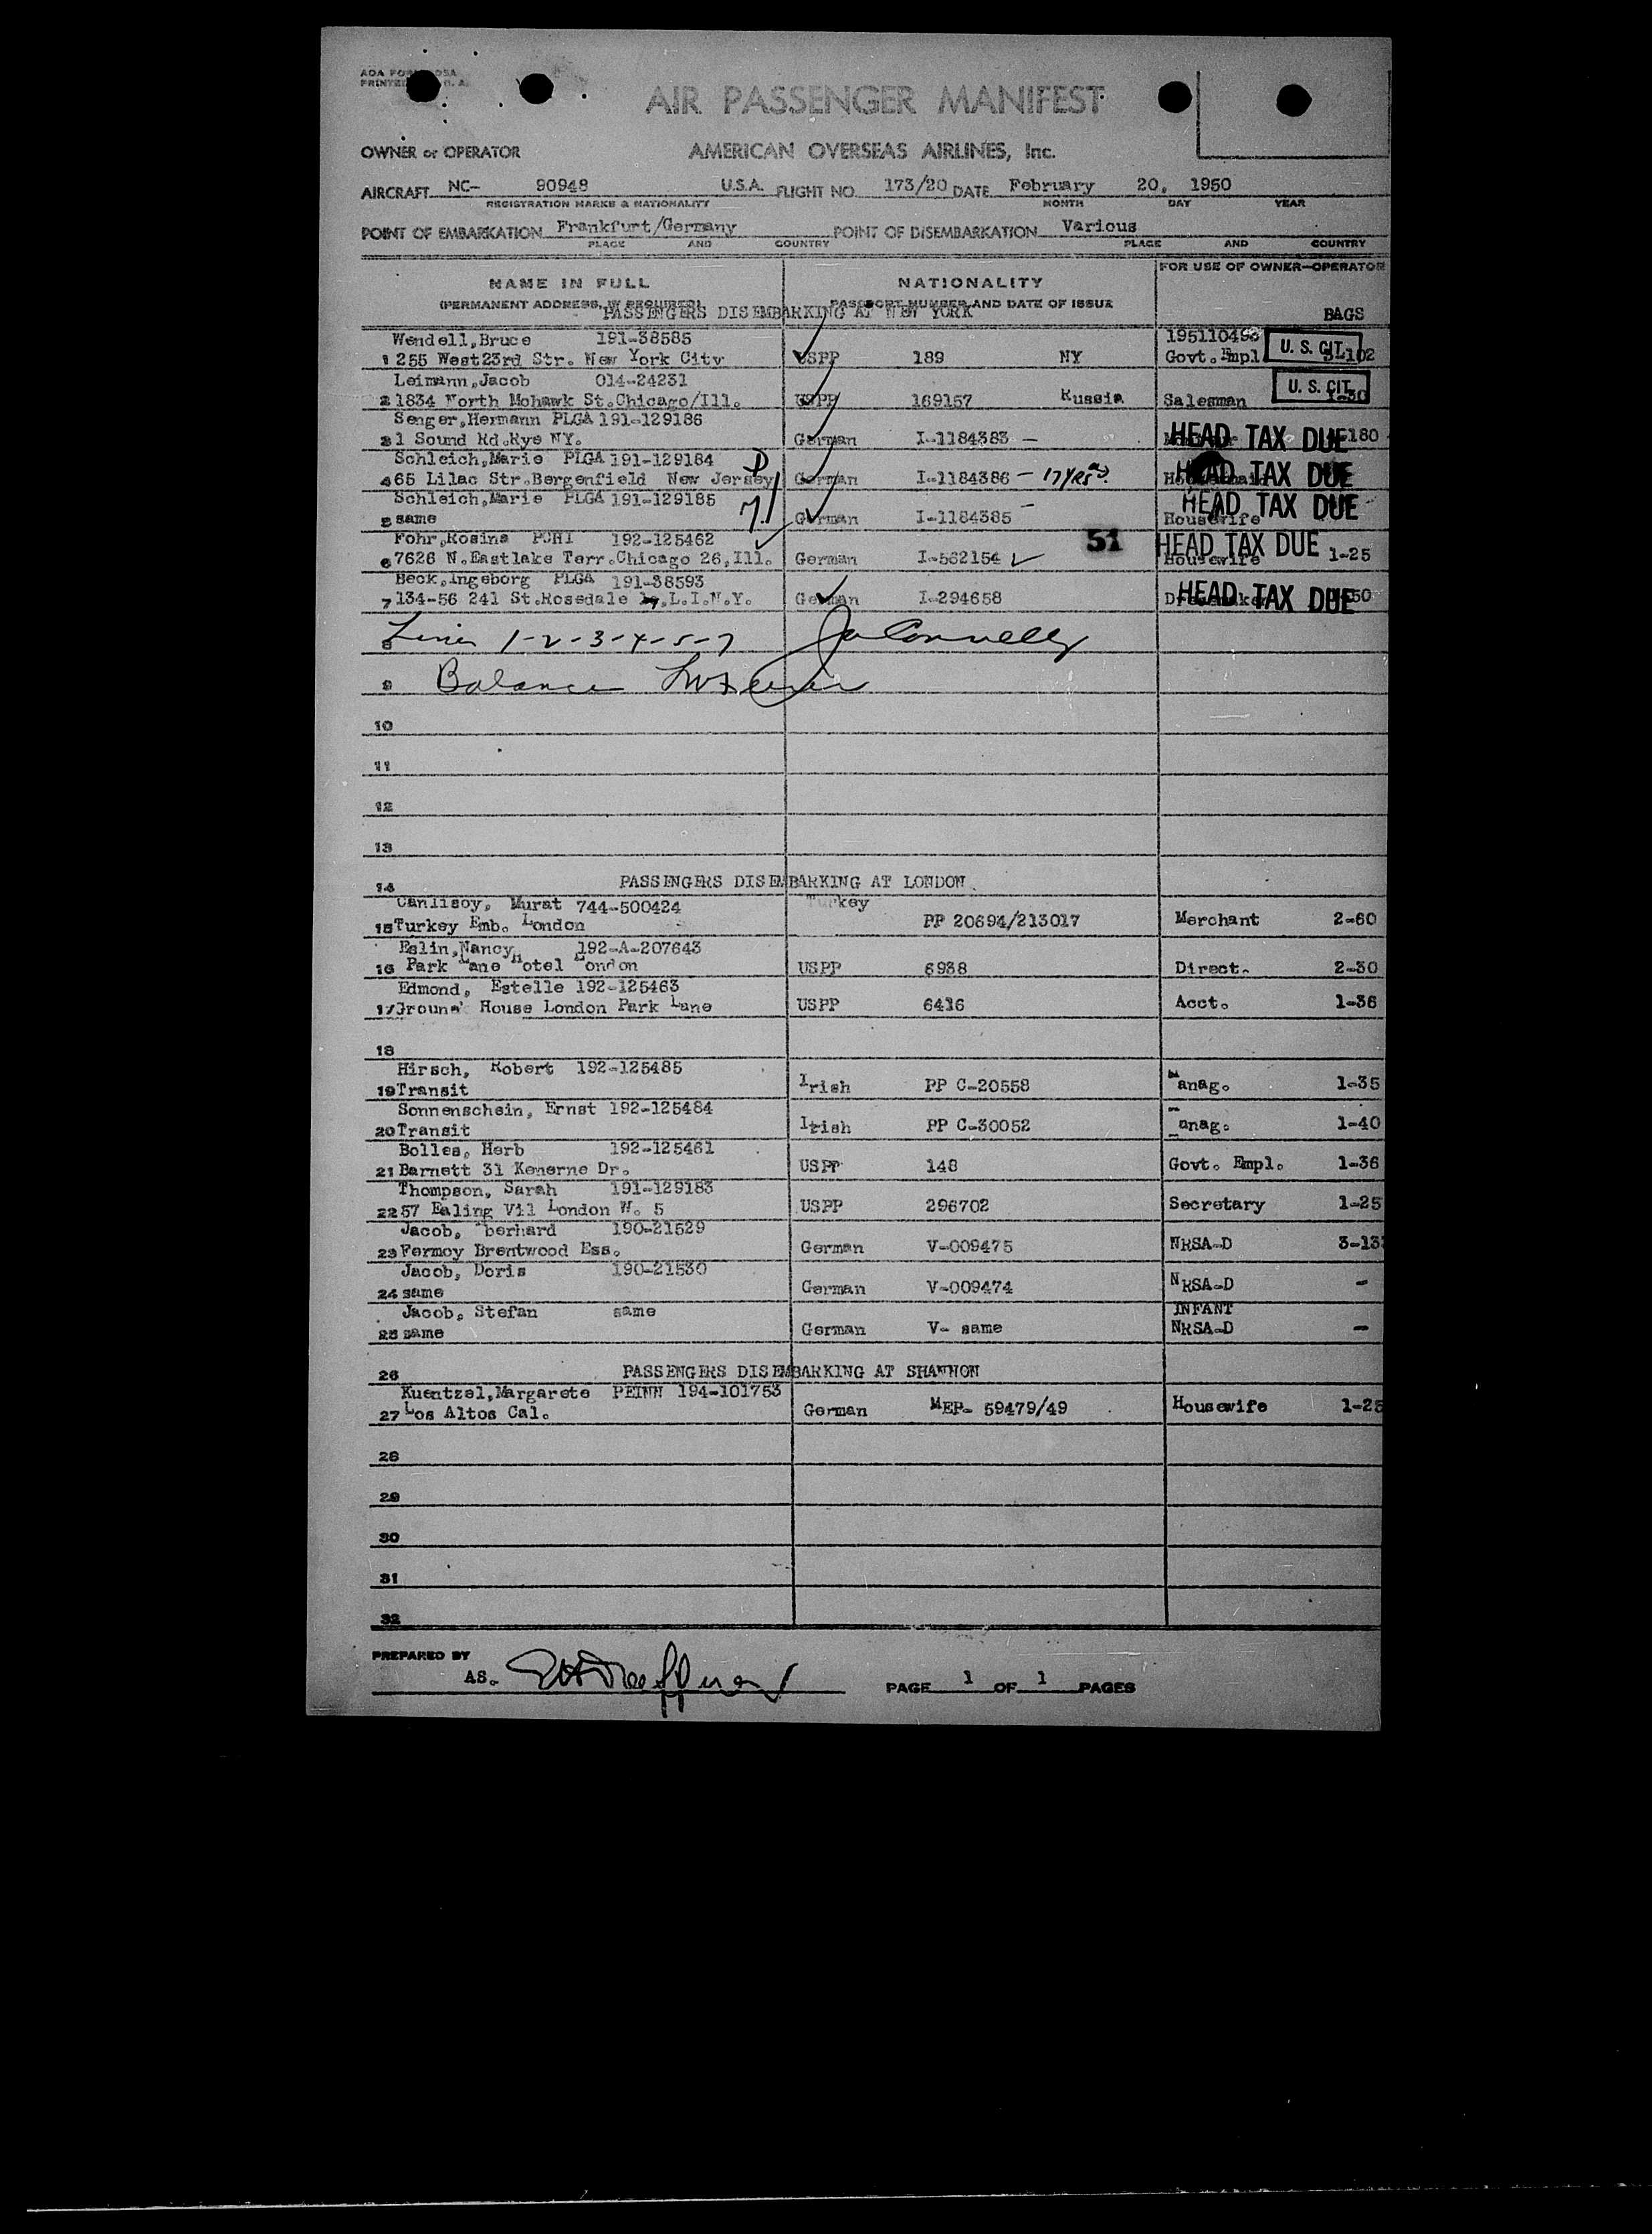 AIR PASSENGER MANIFEST
OWNER or OPERATOR AMERICAN OVERSEAS AIRLINES, Inc.
AIRCRAFT NC- 90948 U.S.A. FLIGHT NO. 173/20 DATE February 20, 1950
REGISTRATION MARKS & NATIONALITY MONTH DAY YEAR
POINT OF EMBARKATION Frankfurt/Germany POINT OF DISEMBARKATION Various
PLACE AND COUNTRY PLACE AND COUNTRY
FOR USE OF OWNER-OPERATOR
NAME IN FULL NATIONALITY
(PERMANENT ADDRESS, IF REQUIRED) PASSPORT NUMBER AND DATE OF ISSUE
PASSENGERS DISEMBARKING AT NEW YORK BAGS
Wendell,Bruce 191-38585 195110493 U. S. CIT.
1 255 West23rd Str. New York City USPP 189 NY Govt.Empl
Leimann,Jacob 014-24231 U. S. CIT.
2 1834 North Mohawk St.Chicago/Ill. USPP 169157 Russia Salesman 1-30
Senger,Hermann PLGA 191-129186
3 1 Sound Rd.Rye NY. German I-1184383 — HEAD TAX DUE 180
Schleich,Marie PLGA 191-129184
4 65 Lilac Str.Bergenfield New Jersey German I-1184386 — 17 YRS HEAD TAX DUE
Schleich,Marie PLGA 191-129185 HEAD TAX DUE
5 same German I-1184385 — Housewife
Fohr,Rosina PCHI 192-125462 51 HEAD TAX DUE
6 7626 N.Eastlake Terr.Chicago 26,Ill. German I-562154 Housewife 1-25
Beck,Ingeborg PLGA 191-38593
7 134-56 241 St.Rosedale L.I.N.Y. German I-294658 HEAD TAX DUE
8 Lines 1-2-3-4-5-7 Connelly
9 Balance
10
11
12
13
14 PASSENGERS DISEMBARKING AT LONDON
Canlisoy, Murat 744-500424 Turkey
15 Turkey Emb. London PP 20694/213017 Merchant 2-60
Eslin,Nancy 192-A-207643
16 Park Lane Hotel London USPP 6938 Direct. 2-30
Edmond, Estelle 192-125463
17 House London Park Lane USPP 6416 Acct. 1-36
18
Hirsch, Robert 192-125485
19 Transit Irish PP C-20558 Manag. 1-35
Sonnenschein, Ernst 192-125484
20 Transit Irish PP C-30052 anag. 1-40
Bolles, Herb 192-125461
21 Barnett 31 Kenerne Dr. USPP 148 Govt. Empl. 1-36
Thompson, Sarah 191-129183
22 57 Ealing Vil London W. 5 USPP 296702 Secretary 1-25
Jacob, berhard 190-21529
23 Fermoy Brentwood Ess. German V-009475 NRSA-D 3-13
Jacob, Doris 190-21530
24 same German V-009474 NRSA-D -
Jacob, Stefan same INFANT
25 same German V- same NRSA-D -
26 PASSENGERS DISEMBARKING AT SHANNON
Kuentzel,Margarete PEINN 194-101753
27 Los Altos Cal. German MEP- 59479/49 Housewife 1-25
28
29
30
31
32
PREPARED BY
AS. PAGE 1 OF 1 PAGES